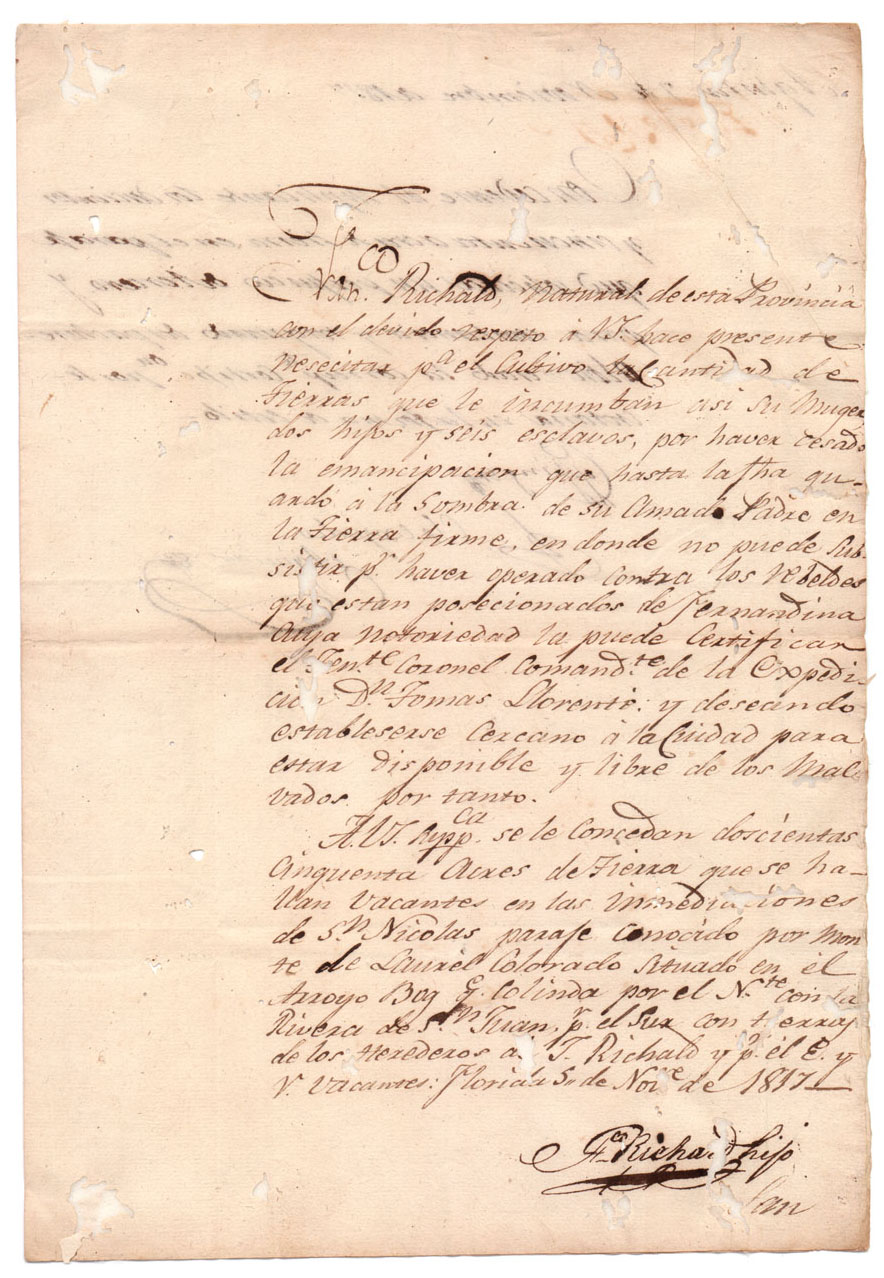 Fco
Richald, Natural de esta Provincia
con el devido respeto á VS. hace presente
Nesecitar pa el Cultivo la Cantidad de
Tierras que le incumban asi su Muger
dos hijos y seis esclavos, por haver cesado
la emancipacion que hasta la fha gu-
ardó á la Sombra de su Amado Padre en
la Tierra firme, en donde no puede sub-
sistir pr haver operado contra los rebeldes
que estan posecionados de Fernandina
Cuya notoriedad la puede Certificar
el Tente Coronel Comandte de la Expedi-
cion Dn Tomas Llorente: y deseando
estableserse Cercano á la Ciudad para
estar disponible y libre de los Mal-
vados por tanto.
A.V.S. Suppca se le Concedan doscientas
Cinquenta Acres de Tierra que se ha-
llan Vacantes en las inmediaciones
de Sn Nicolas paraje conocido por Mon
te de Laurel Colorado Situado en el
Arroyo Bog qe Colinda por el Nte con la
Rivera de Sn Juan, pr el Sur con tierras
de los Herederos de F. Richald y pr el E. y
V. Vacantes: Florida 5, de Nove de 1817
Fco Richard hijo